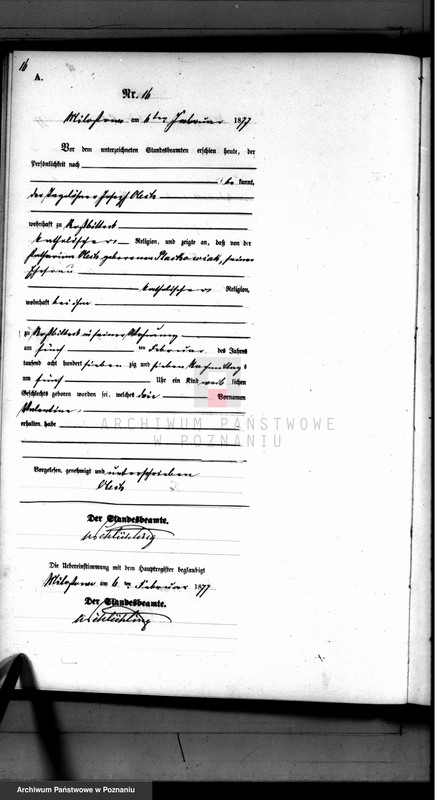 16
A.
Nr. 16
Milostowo am 6ten Februar 1877
Vor dem unterzeichneten Standesbeamten erschien heute, der
Persönlichkeit nach
be kannt,
der Tagelöhner Joseph
wohnhaft zu
katholischer Religion, und zeigte an, daß von der
Katharina geborenen Ptaskowiak, seiner
Ehefrau
katholischer Religion,
wohnhaft bei ihm
zu in seiner Wohnung
am fünf ten Februar des Jahres
tausend acht hundert sieben zig und sieben Nachmittags
um fünf Uhr ein Kind weib lichen
Geschlechts geboren worden sei, welches die Vornamen
Valentine
erhalten habe
ARCHIWUM PAŃSTWOWE
W POZNANIU
Vorgelesen, genehmigt und unterschrieben
Der Standesbeamte.
Die Uebereinstimmung mit dem Hauptregister beglaubigt
Milostowo am 6 ten Februar 1877
Der Standesbeamte.
Archiwum Państwowe w Poznaniu